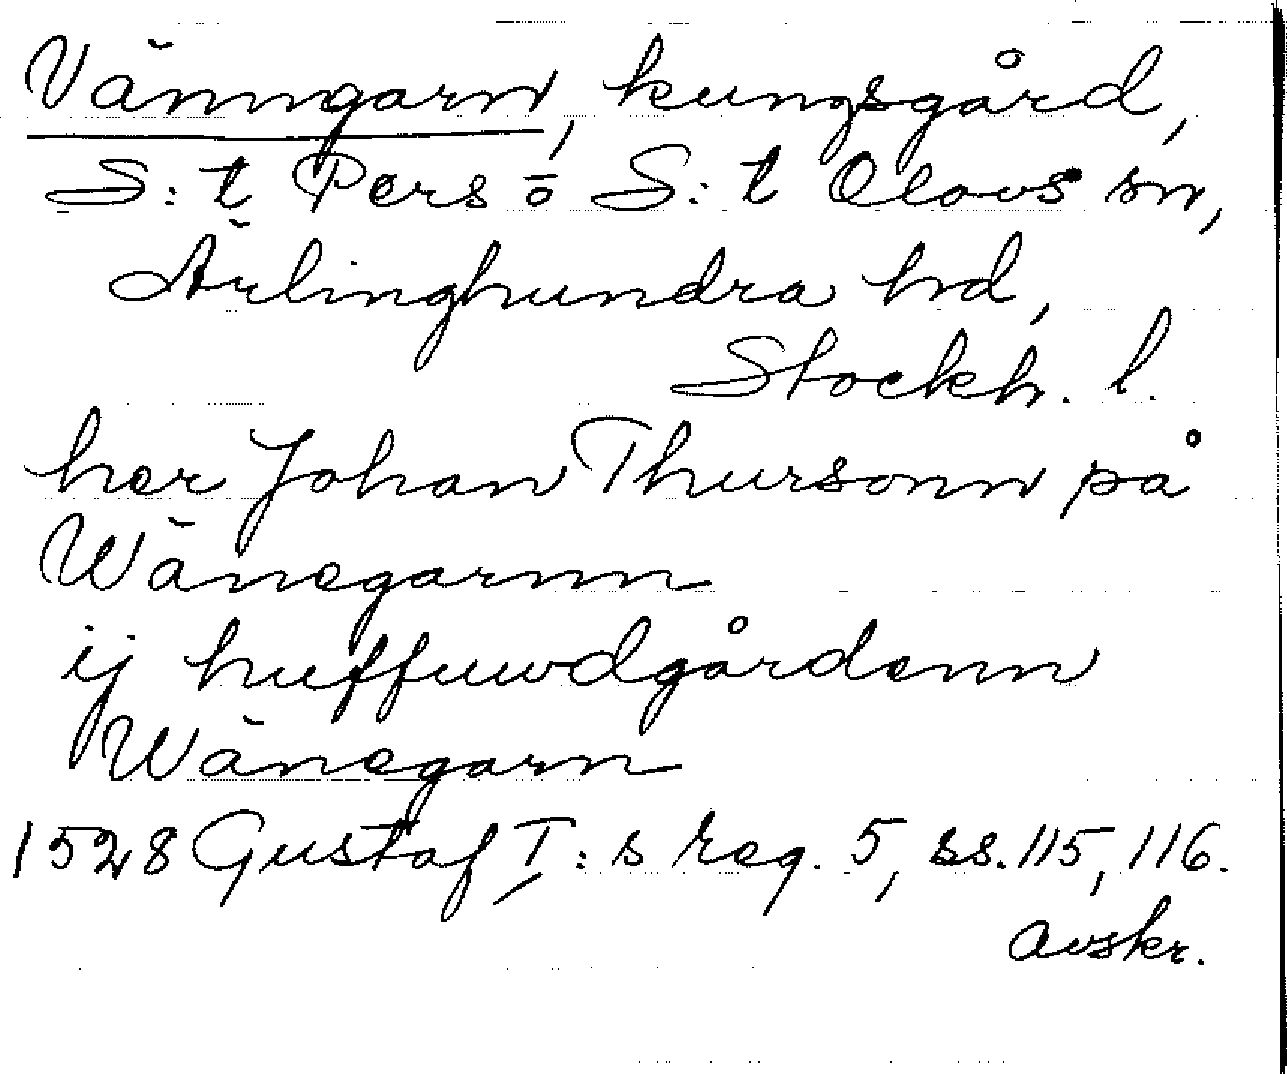 Vänngarn, kungsgård,
S:t Pers o S:t Olovs sn,
Ärlinghundra hd,
Stockh. l.
her Johan Thursonn på
Wänegarnn
ij huffuwdgårdenn
Wänegarn
1528 Gustaf I:s reg. 5, ss. 115, 116.
Avskr.